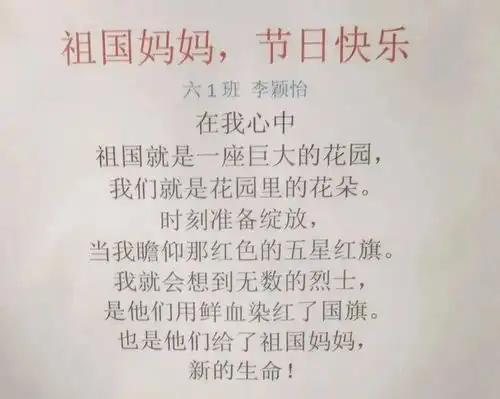 祖国妈妈，节日快乐
六1班 李颖怡
在我心中
祖国就是一座巨大的花园，
我们就是花园里的花朵。
时刻准备绽放，
当我瞻仰那红色的五星红旗。
我就会想到无数的烈士，
是他们用鲜血染红了国旗。
也是他们给了祖国妈妈，
新的生命！